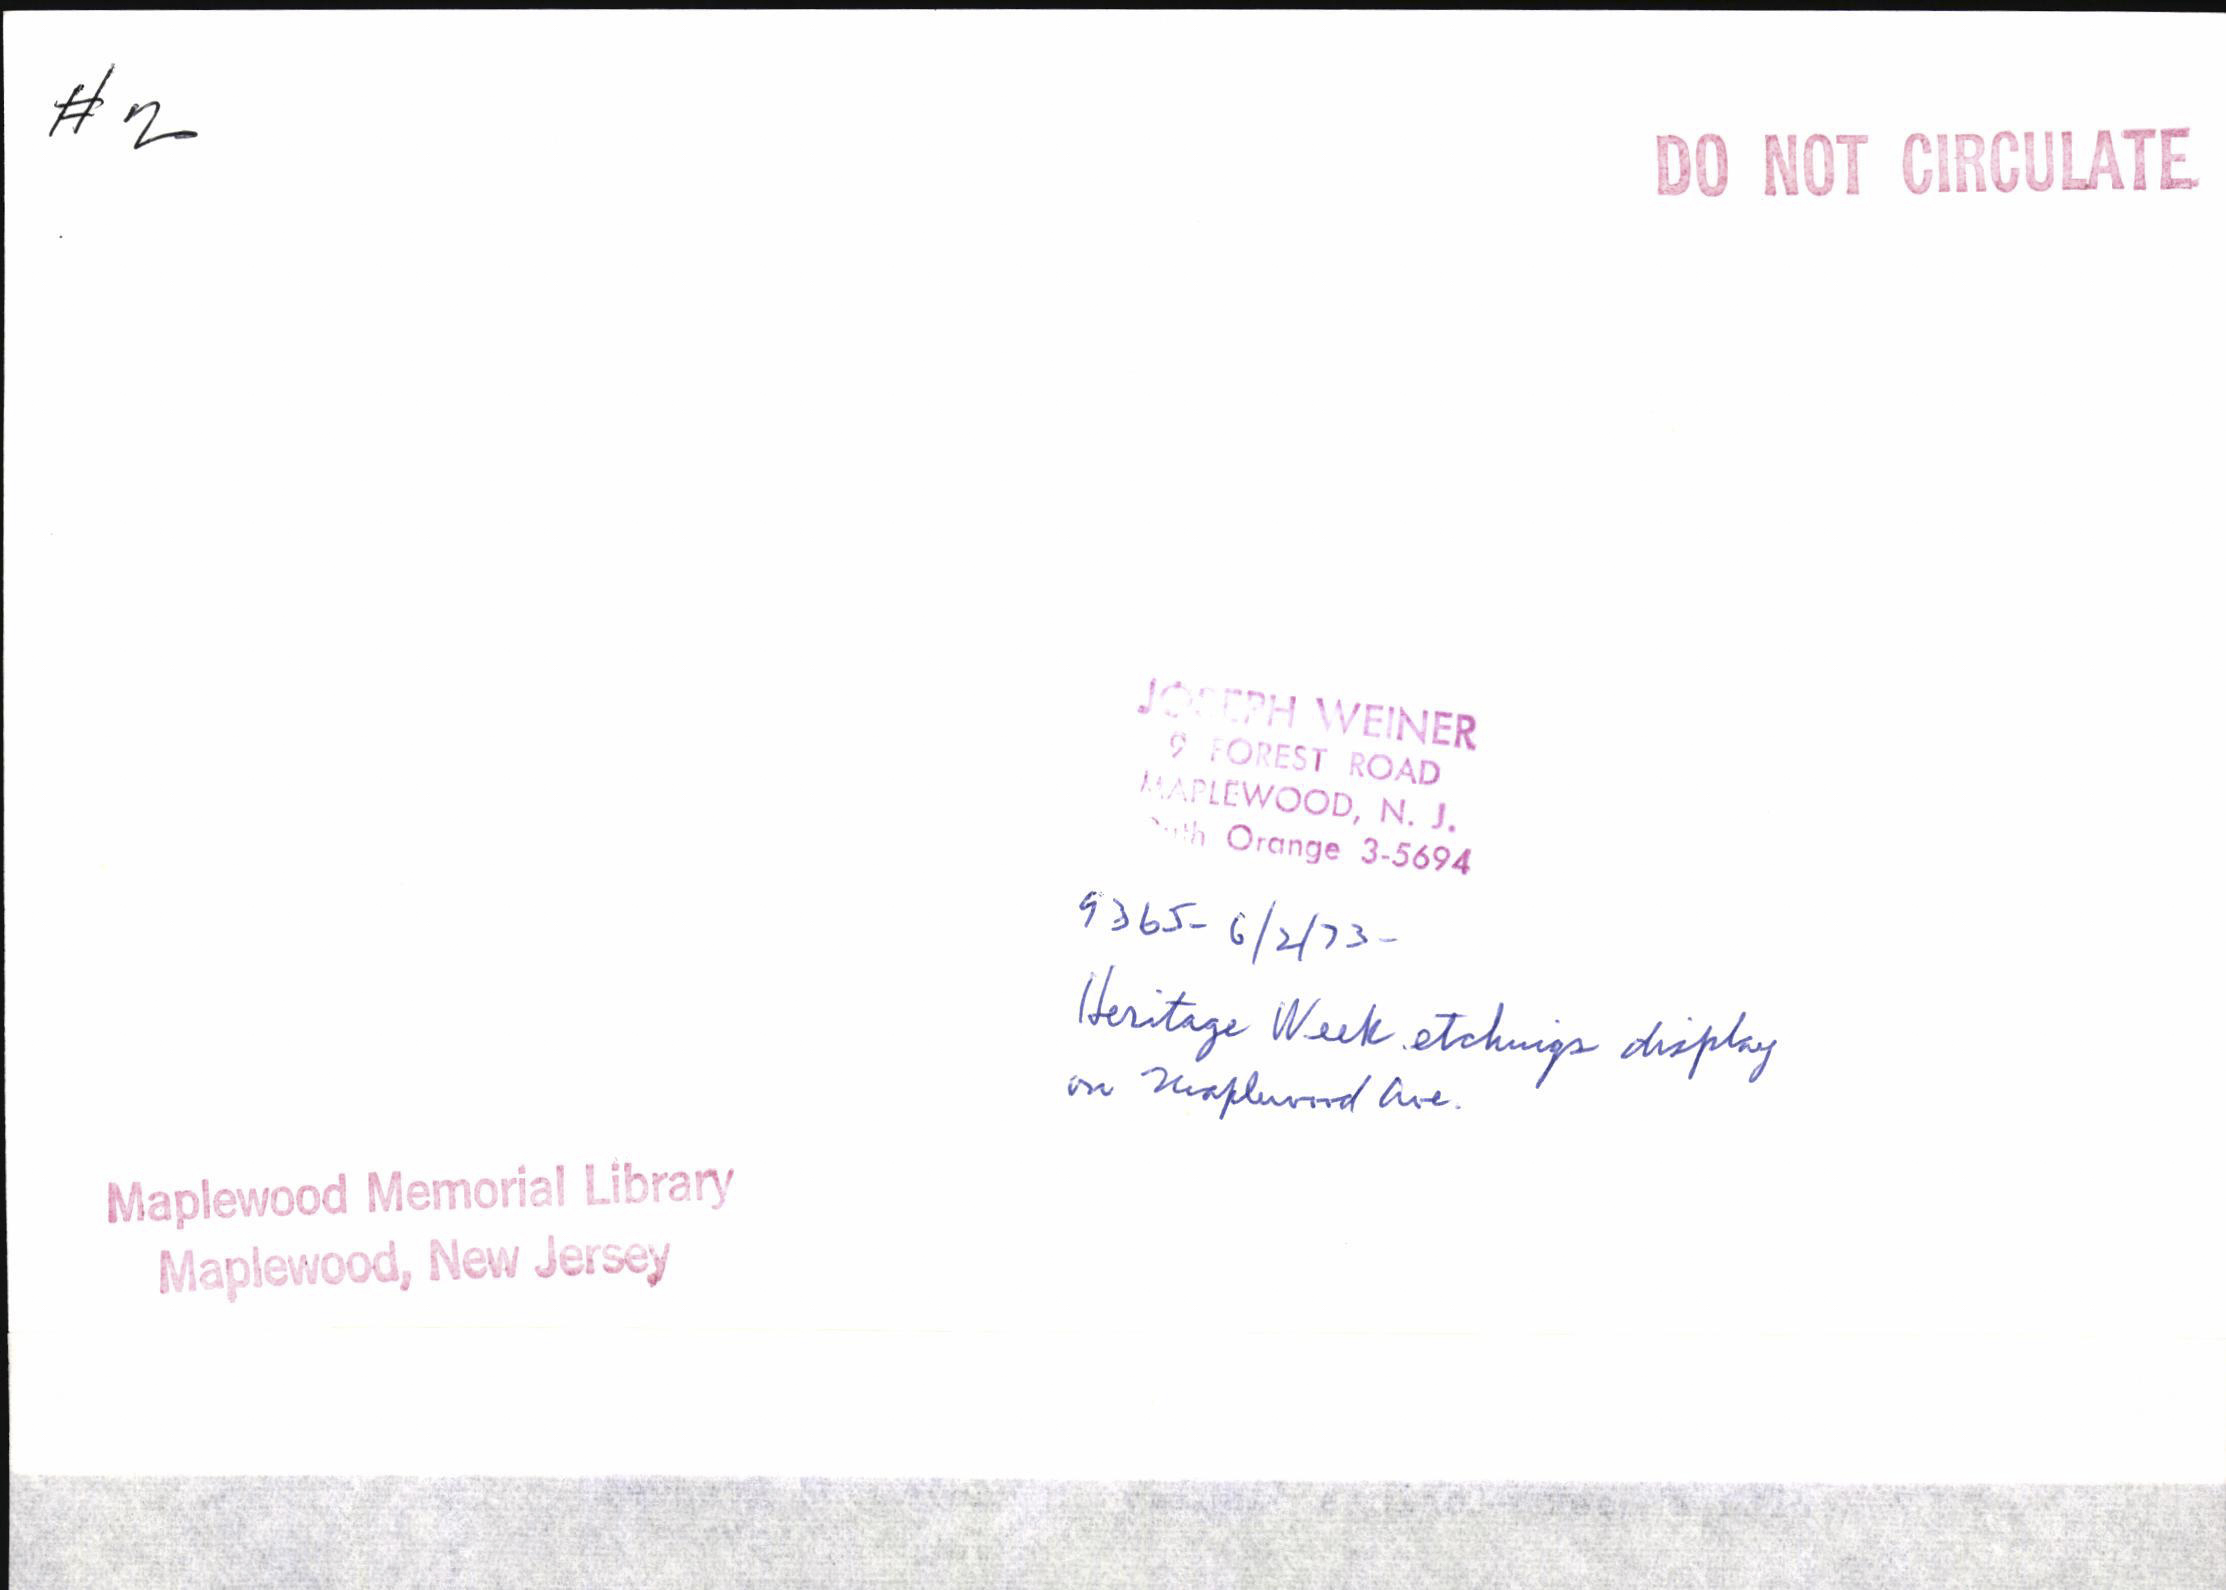 # 2
DO NOT CIRCULATE
JOSEPH WEINER
9 FOREST ROAD
MAPLEWOOD, N. J.
Orange 3-5694
9365- 6/2/73-
Heritage Week etchings display
on Maplewood Ave.
Maplewood Memorial Library
Maplewood, New Jersey